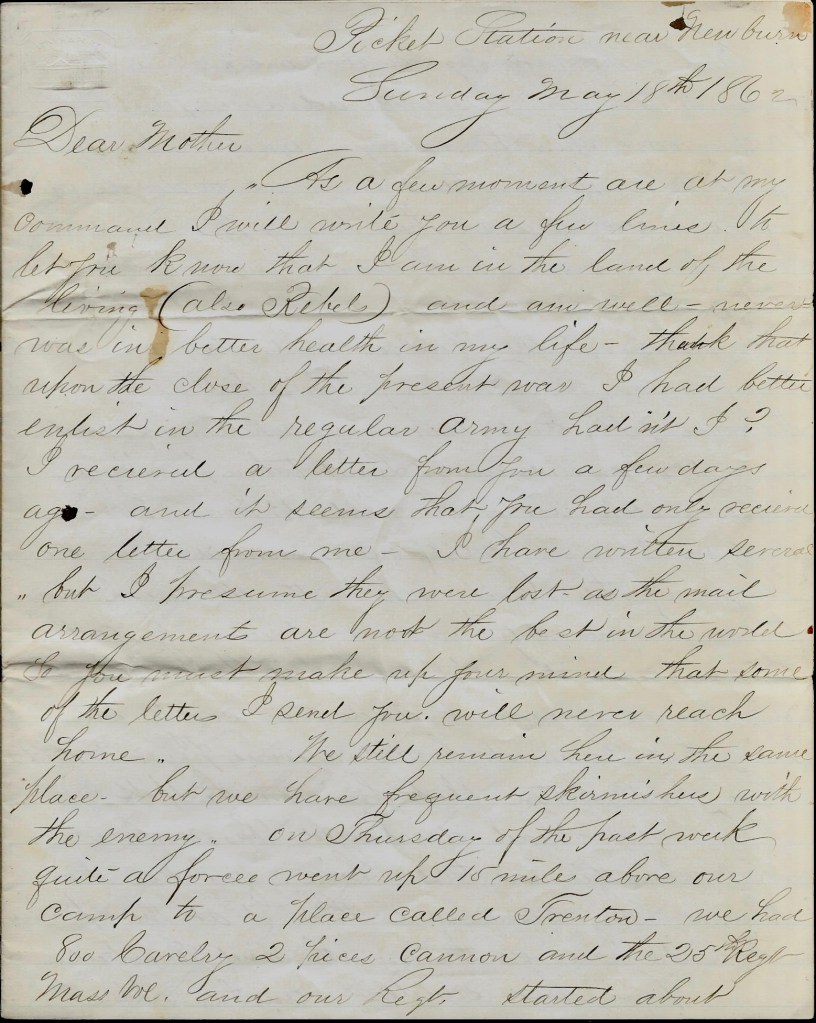 Picket Station near Newburn
Sunday May 18th 1862
Dear Mother
" As a few moment are at my
command I will write you a few lines. to
let you know that I am in the land of the
living (also Rebels) and am well - never
was in better health in my life - think that
upon the close of the present war I had better
enlist in the regular army had n't I?
I recieved a letter from you a few days
ago - and it seems that you had only recieved
one letter from me - I have written several
" but I presume they were lost - as the mail
arrangements are not the best in the world
So you must make up your mind that some
of the letters I send you. will never reach
home " We still remain here in the same
place - but we have frequent skirmishes with
the enemy " on Thursday of the past week
quite a forcee went up 15 mile above our
camp to a place called Trenton - we had
800 Cavelry 2 pices cannon and the 25th Regt
Mass Vol. and our Regt. started about